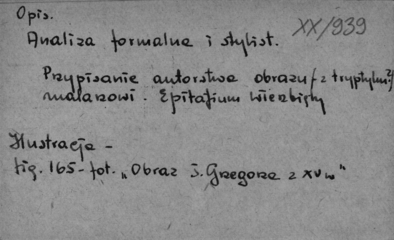 Opis.
XX/939
Analiza formalna i stylist.
Przypisanie autorstwa obrazu /z tryptyku?/
malarzowi. Epitafium Wierzbięty
Ilustracja -
fig. 165 - fot. „Obraz ś. Grzegorza z XV w"